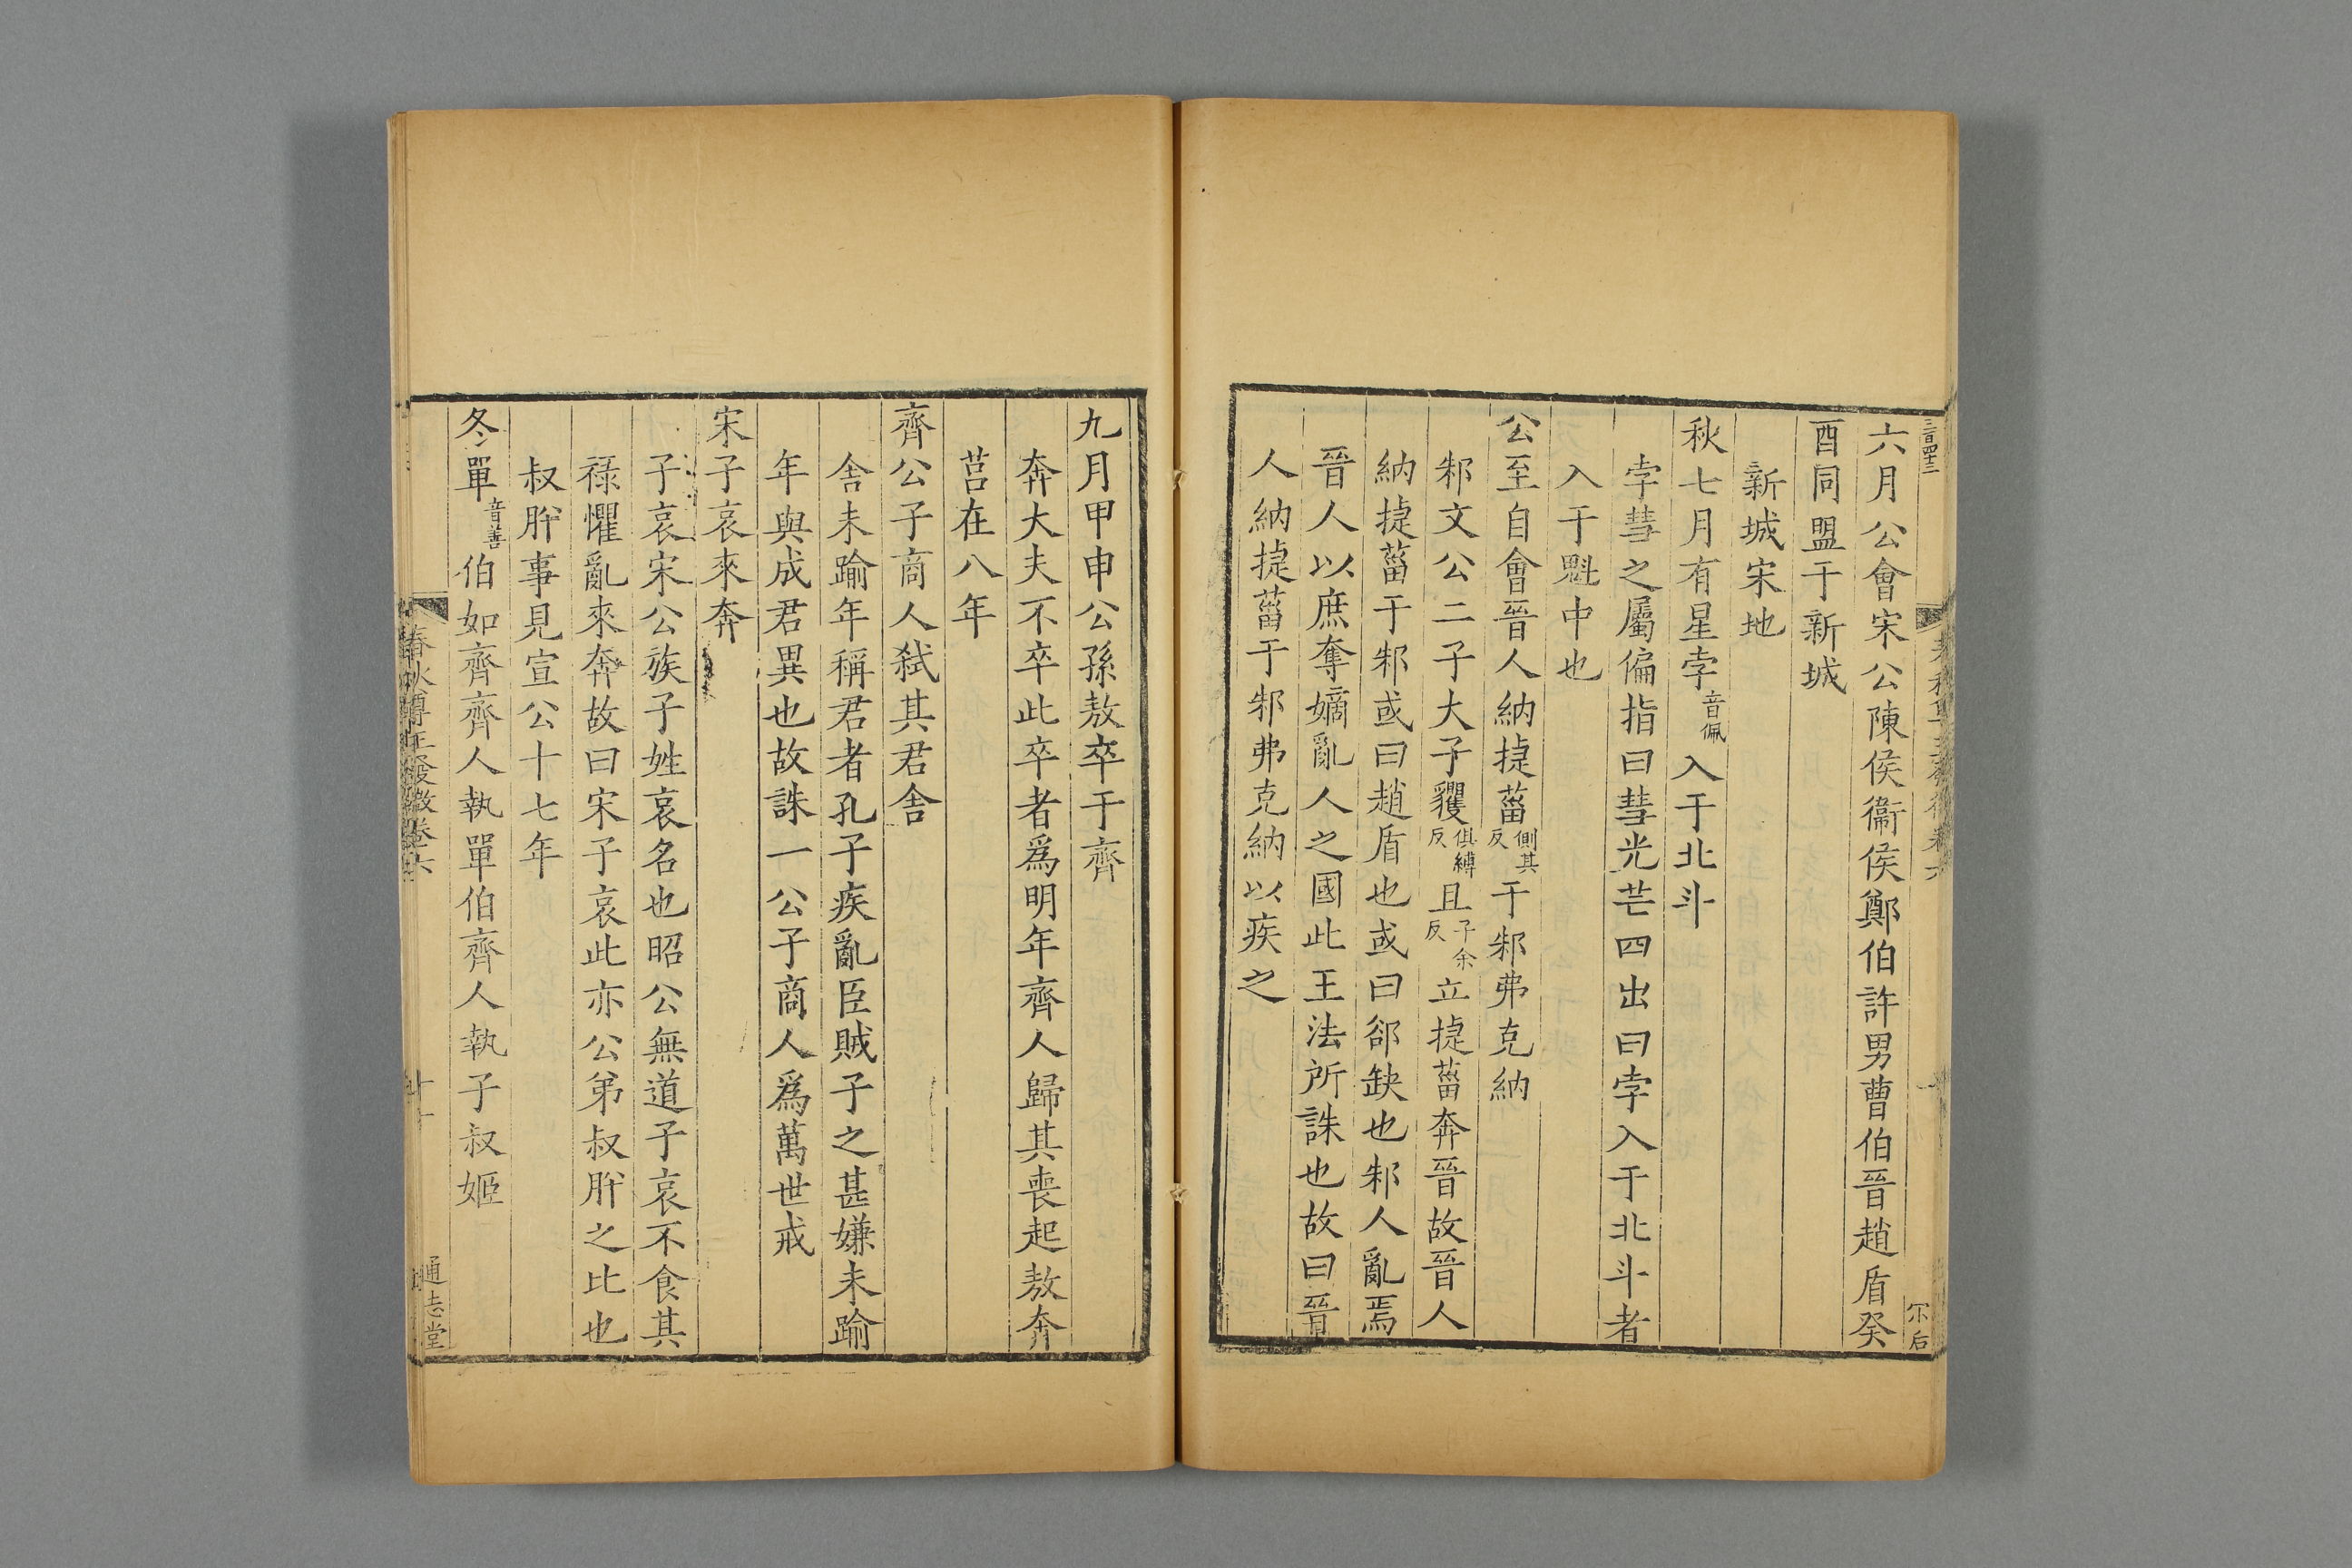 三百四十三
六月公會宋公陳侯衞侯鄭伯許男曹伯晉趙盾癸
酉同盟于新城
新城宋地
秋七月有星孛音佩入于北斗
孛彗之屬偏指曰彗光芒四出曰孛入于北斗者
入于魁中也
公至自會晉人納捷菑側其反于邾弗克納
邾文公二子大子貜俱縛反且子余反立捷菑奔晉故晉人
納捷菑于邾或曰趙盾也或曰郤缺也邾人亂焉
晉人以庶奪嫡亂人之國此王法所誅也故曰晉
人納捷菑于邾弗克納以疾之
九月甲申公孫敖卒于齊
奔大夫不卒此卒者爲明年齊人歸其喪起敖奔
莒在八年
齊公子商人弑其君舍
舍未踰年稱君者孔子疾亂臣賊子之甚嫌未踰
年與成君異也故誅一公子商人爲萬世戒
宋子哀來奔
子哀宋公族子姓哀名也昭公無道子哀不食其
祿懼亂來奔故曰宋子哀此亦公弟叔肸之比也
叔肸事見宣公十七年
冬單音善伯如齊齊人執單伯齊人執子叔姬
春秋尊王發微卷六
十一
通志堂